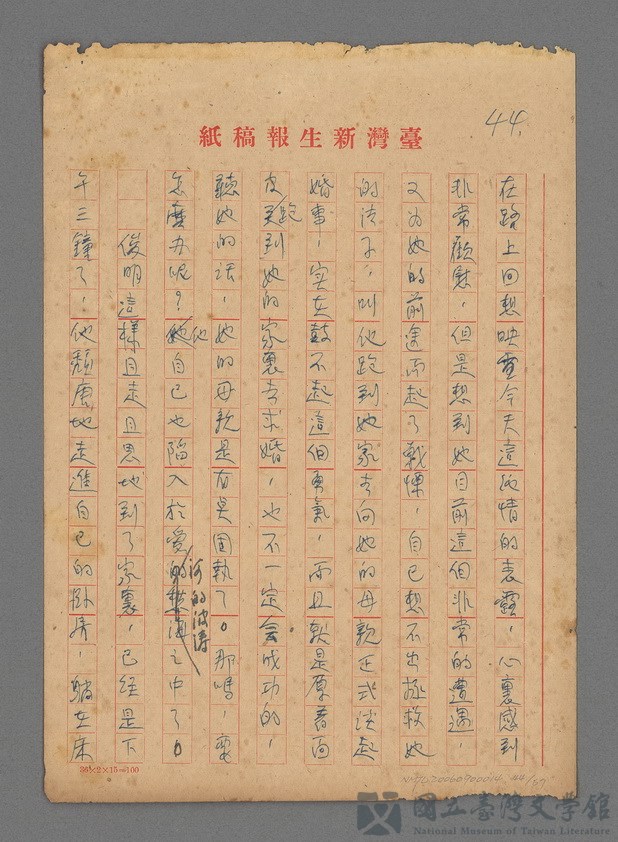 44.
紙稿報生新灣臺
在路上回想映雪今天這純情的表露，心裏感到
非常歡慰，但是想到她目前這個非常的遭遇，
又為她的前途而起了戰慄，自己想不出拯救她
的法子，叫他跑到她家去向她的母親正式談起
婚事，實在鼓不起這個勇氣，而且就是厚着面
皮跑到她的家裏去求婚，也不一定會成功的，
聽她的話，她的母親是有異固執了。那嗎，要
怎麼办呢？他自己也陷入於愛河的波濤之中了。
俊明這樣且走且思地到了家裏，已經是下
午三鐘了，他頹唐地走進自己的卧房，躺在床
36×2×15=100
NMTL20060900016 44/57
國立臺灣文學館
National Museum of Taiwan Literature